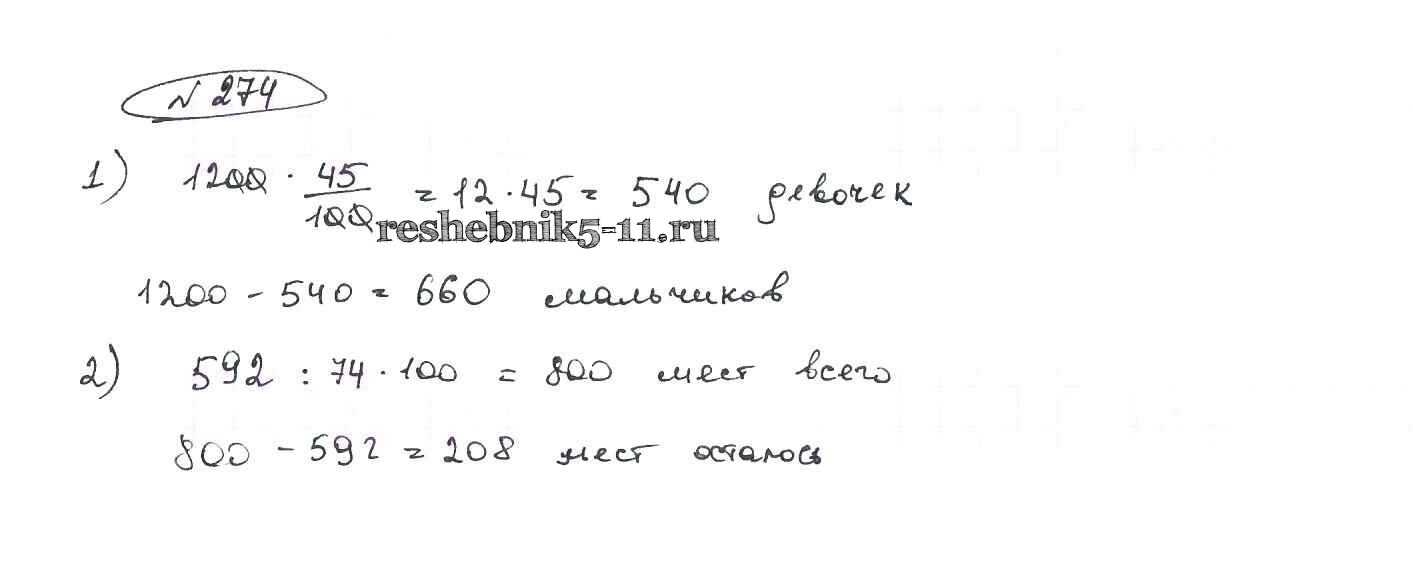 № 274
1) 1200 · 45/100 = 12 · 45 = 540 девочек
reshebnik5-11.ru
1200 - 540 = 660 мальчиков
2) 592 : 74 · 100 = 800 мест всего
800 - 592 = 208 мест осталось